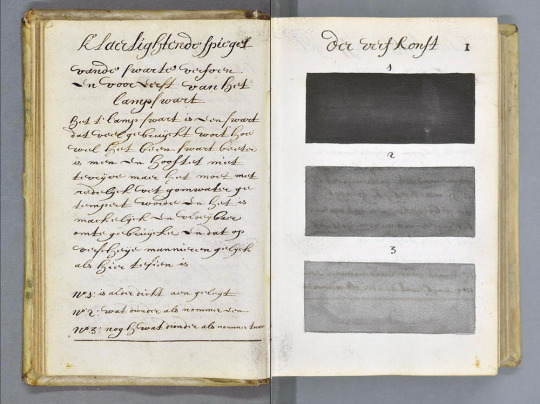 klaerlightende spiegel
vande swarte verfven
En voor eerst van het
lampswart
het t' lampswart is een swart
dat veel gebruijckt wort hoe
wel het been swart beeter
is men en hooft et niet
te vrijve maer het moet met
redelijck vet gomwater ge
tempert worde en het is
mackelijck en vloeijbaer
omte gebruijcke en dat op
verscheije mannieren gelijck
als hier te sien is
No 1: is alder dickt aen gelegt
No 2: wat dunder als nommer een
No 3: nog wat dunder als nommer twee
der verfkonst 1
1
2
3